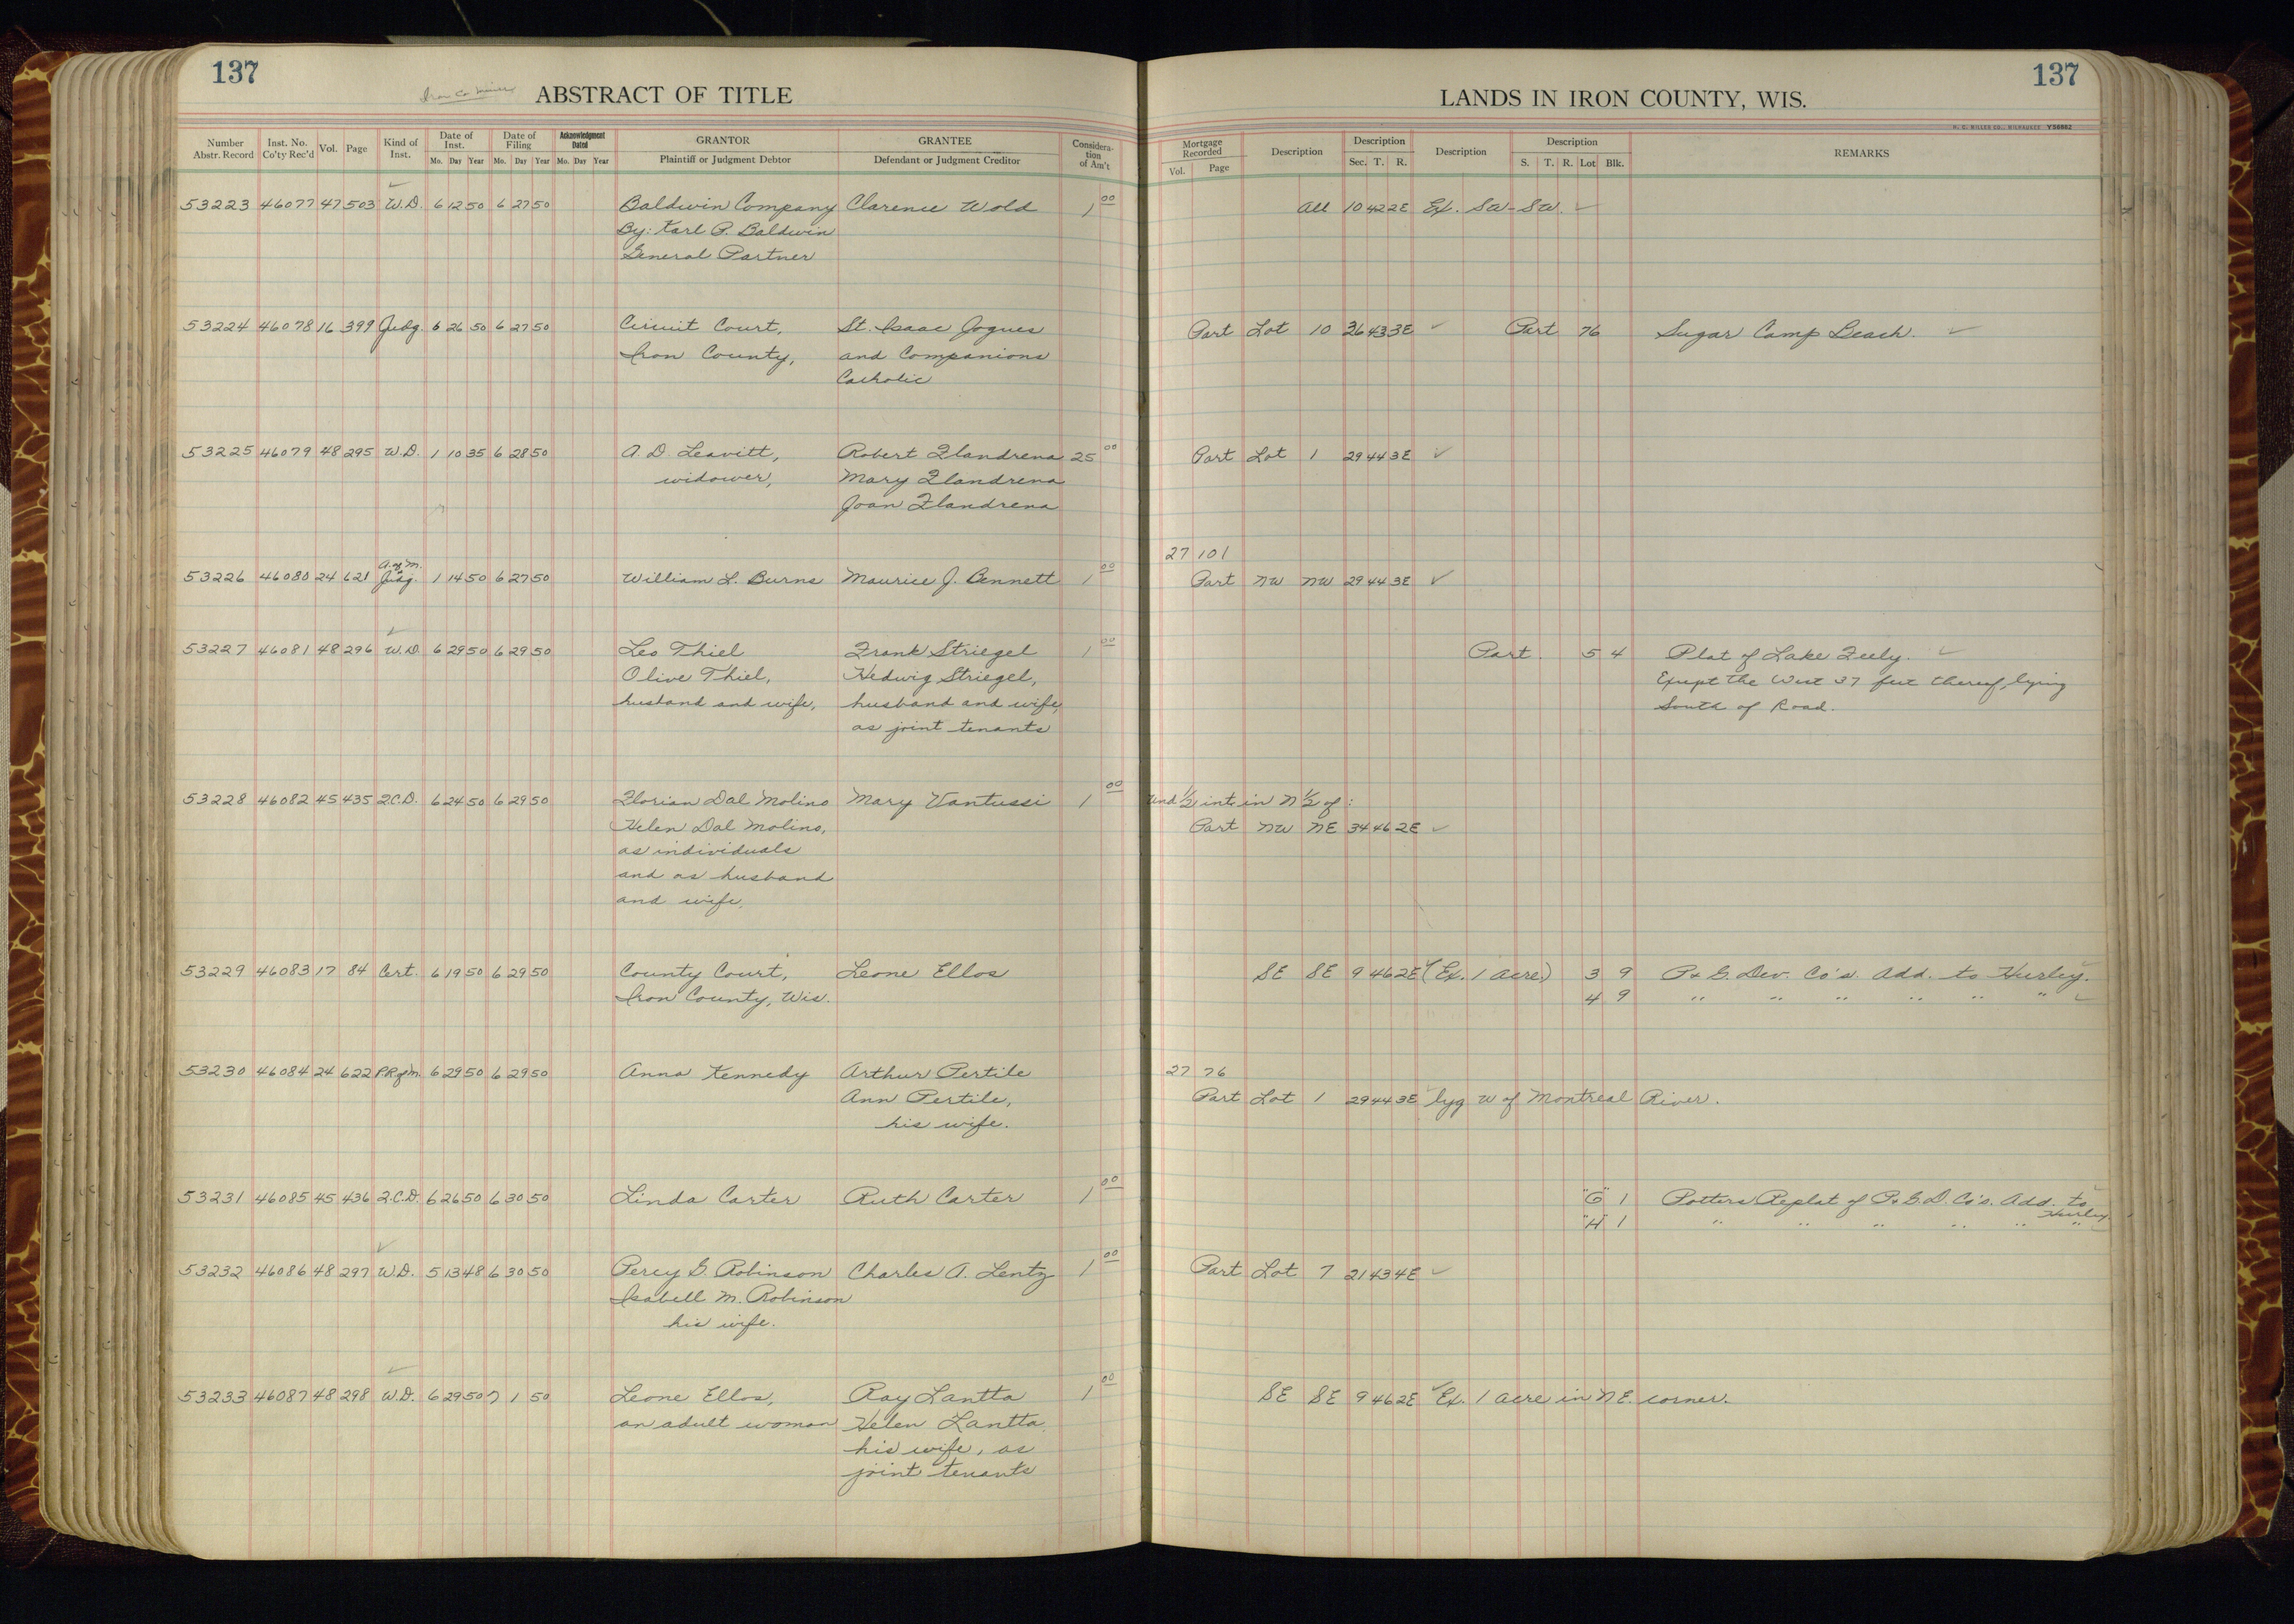 137
Iron Co Miner
ABSTRACT OF TITLE
Number Abstr. Record Inst. No. Co'ty Rec'd Vol. Page Kind of Inst. Date of Inst. Mo. Day Year Date of Filing Mo. Day Year Acknowledgment Dated Mo. Day Year GRANTOR Plaintiff or Judgment Debtor GRANTEE Defendant or Judgment Creditor Considera-tion of Am't
137
LANDS IN IRON COUNTY, WIS.
H. C. MILLER CO., MILWAUKEE Y56682
Mortgage Recorded Vol. Page Description Description Sec. T. R. Description Description S. T. R. Lot Blk. REMARKS
53223 46077 47 503 W.D. 6 12 50 6 27 50 Baldwin Company Clarence Wold 1 00 All 10 42 2E Ex. SW-SW.
By: Karl P. Baldwin
General Partner
53224 46078 16 399 Judg. 6 26 50 6 27 50 Circuit Court, St. Isaac Jogues Part Lot 10 36 43 3E Part 76 Sugar Camp Beach.
Iron County, and Companions
Catholic
53225 46079 48 295 W.D. 1 10 35 6 28 50 A. D. Leavitt, Robert Flandrena 25 00 Part Lot 1 29 44 3E
widower, Mary Flandrena
Joan Flandrena
27 101
A. of M.
53226 46080 24 621 Judg. 1 14 50 6 27 50 William L. Burns Maurice J. Bennett 1 00 Part NW NW 29 44 3E
53227 46081 48 296 W.D. 6 29 50 6 29 50 Leo Thiel Frank Striegel 1 00 Part. 5 4 Plat of Lake Feely.
Olive Thiel, Hedwig Striegel, Except the West 37 feet thereof, lying
husband and wife, husband and wife, South of Road.
as joint tenants
53228 46082 45 435 Q.C.D. 6 24 50 6 29 50 Florian Dal Molino Mary Vantussi 1 00 Und 1/2 int. in N 1/2 of:
Helen Dal Molino, Part NW NE 34 46 2E
as individuals
and as husband
and wife,
53229 46083 17 84 Cert. 6 19 50 6 29 50 County Court, Leone Ellos SE SE 9 46 2E (Ex. 1 acre) 3 9 P. & G. Dev. Co's. Add. to Hurley.
Iron County, Wis. 4 9 " " " " " "
53230 46084 24 622 P.R. of M. 6 29 50 6 29 50 Anna Kennedy Arthur Pertile 27 76
Ann Pertile, Part Lot 1 29 44 3E lyg W of Montreal River.
his wife.
53231 46085 45 436 Q.C.D. 6 26 50 6 30 50 Linda Carter Ruth Carter 1 00 "G" 1 Potters Replat of P. & G. D. Co's. Add. to Hurley.
"H" 1 " " " " " "
53232 46086 48 297 W.D. 5 13 48 6 30 50 Percy G. Robinson Charles A. Lentz 1 00 Part Lot 7 21 43 4E
Isabell M. Robinson
his wife.
53233 46087 48 298 W.D. 6 29 50 7 1 50 Leone Ellos, Ray Lantta 1 00 SE SE 9 46 2E Ex. 1 acre in NE. corner.
an adult woman Helen Lantta,
his wife, as
joint tenants